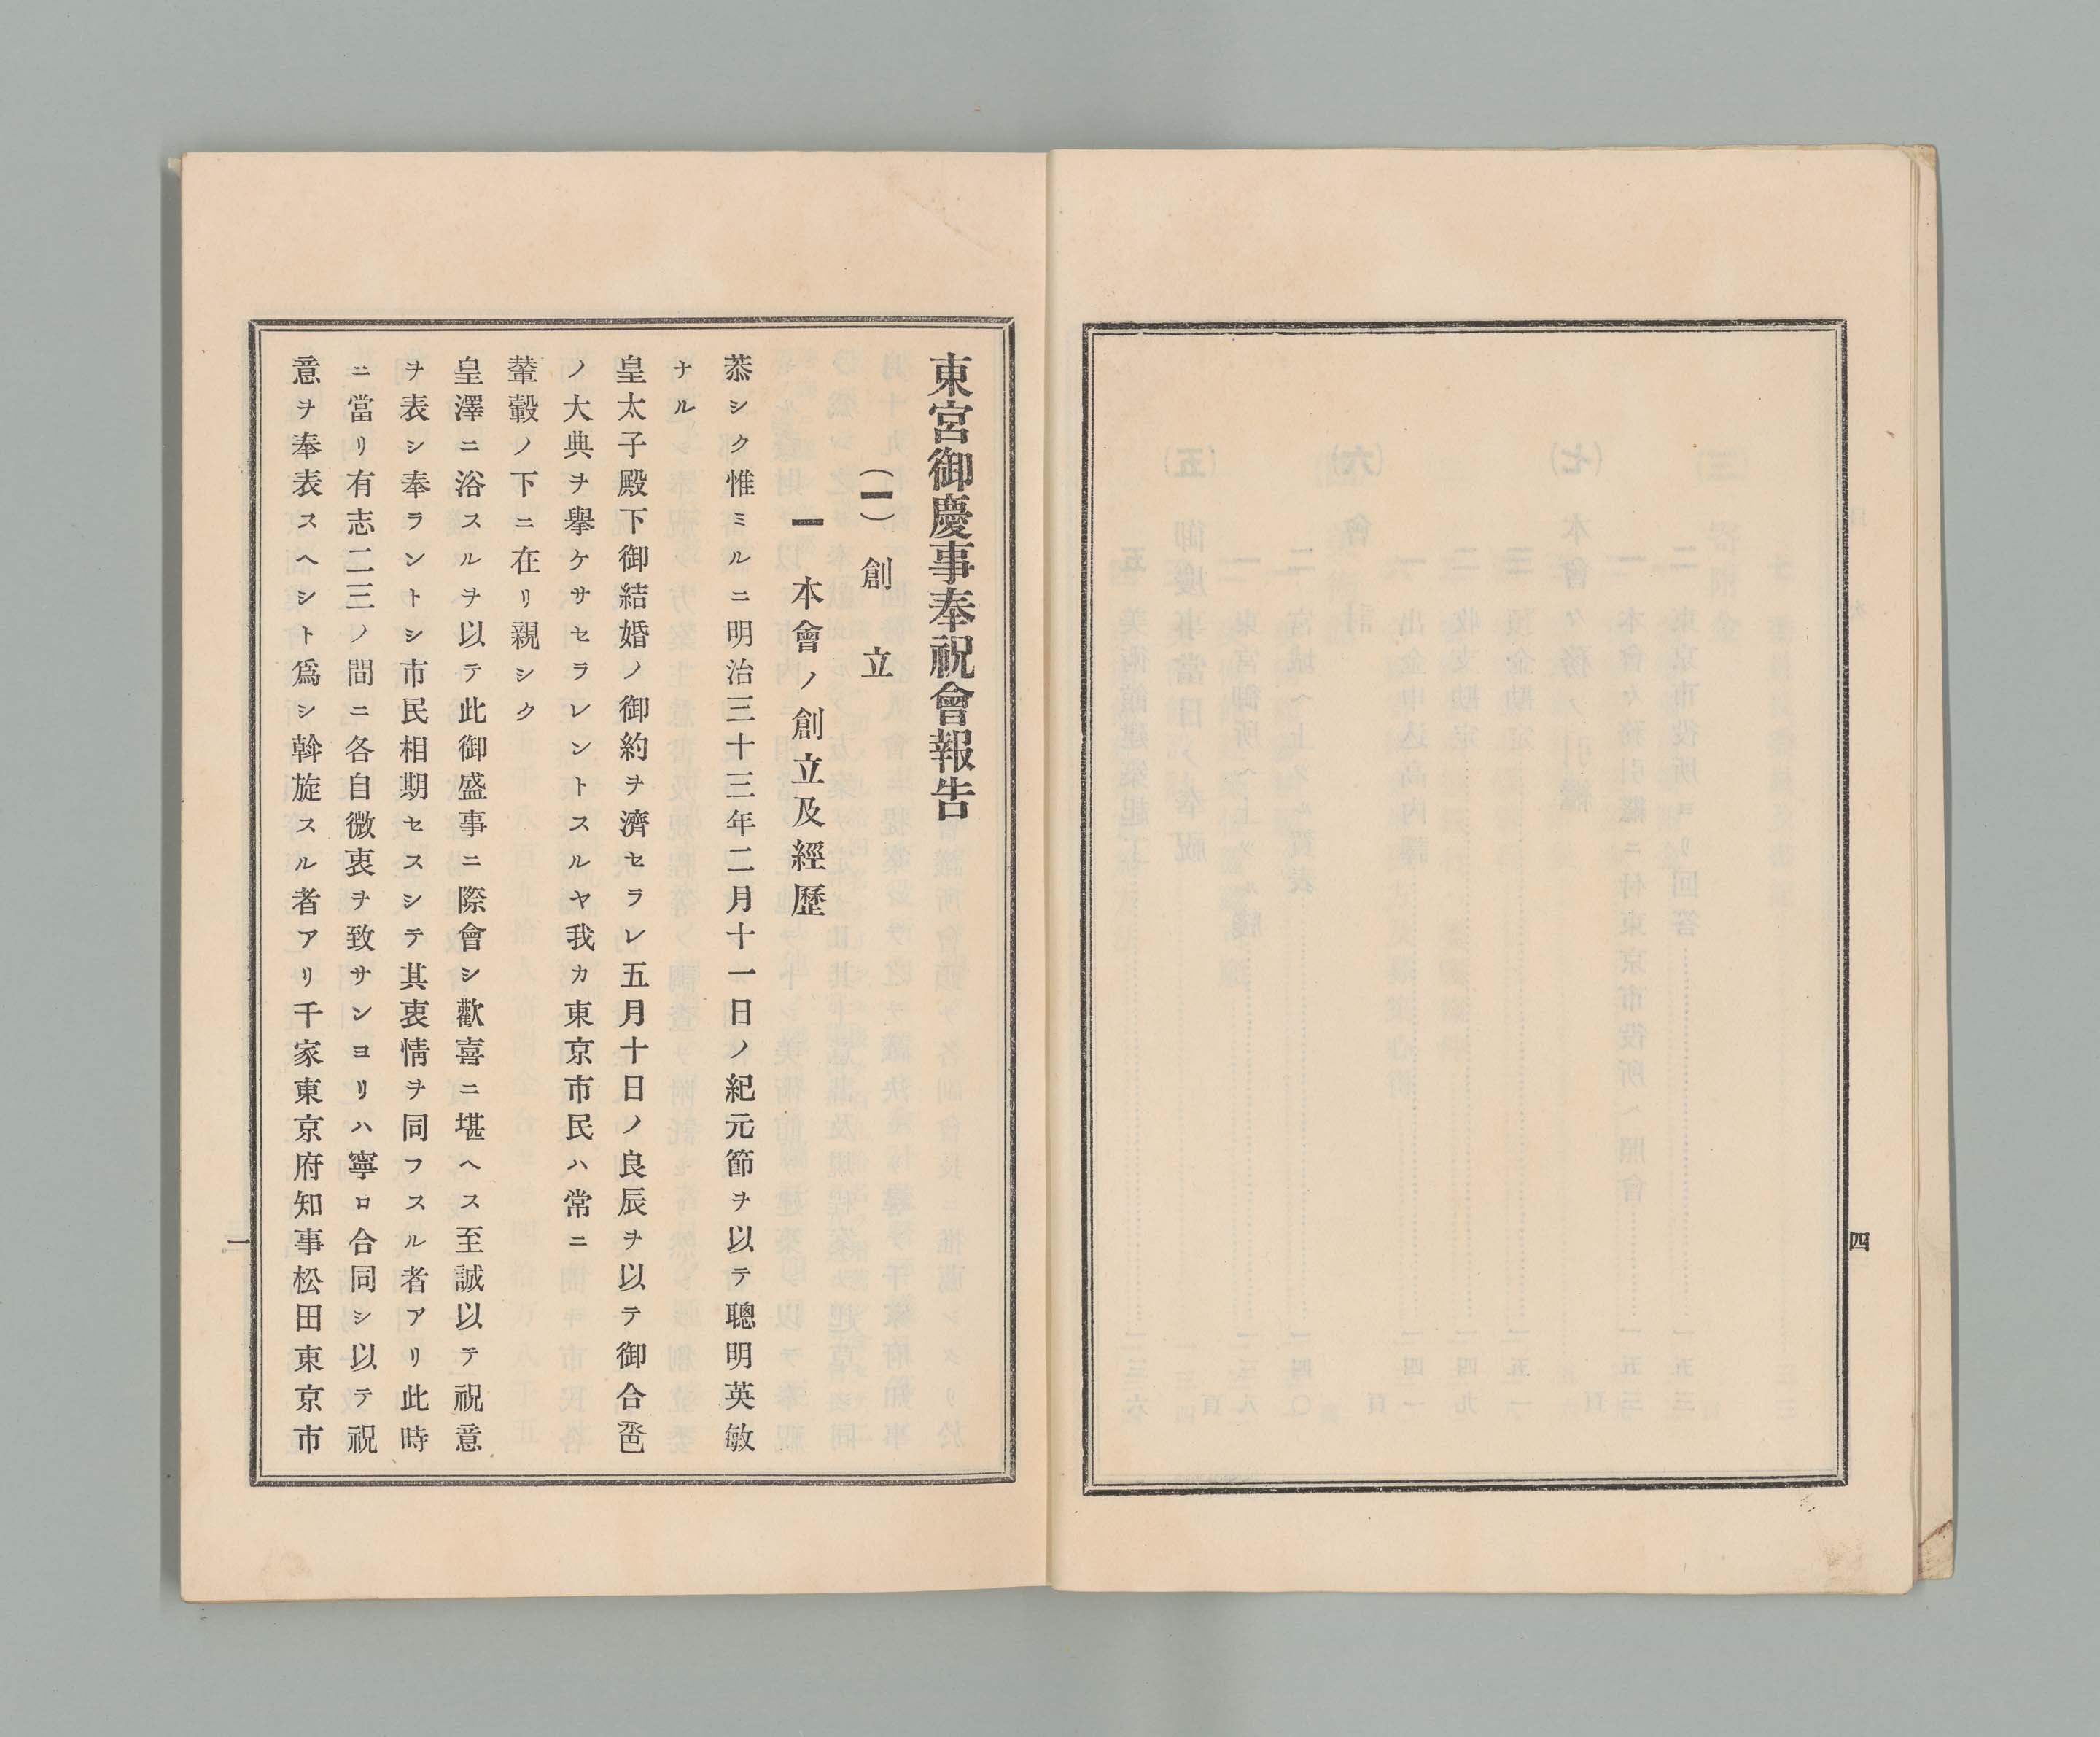 四
東宮御慶事奉祝會報告
(一) 創立
一 本會ノ創立及經歴
恭シク惟ミルニ明治三十三年二月十一日ノ紀元節ヲ以テ聰明英敏
ナル
皇太子殿下御結婚ノ御約ヲ濟セラレ五月十日ノ良辰ヲ以テ御合巹
ノ大典ヲ擧ケサセラレントスルヤ我カ東京市民ハ常ニ
輦轂ノ下ニ在リ親シク
皇澤ニ浴スルヲ以テ此御盛事ニ際會シ歡喜ニ堪ヘス至誠以テ祝意
ヲ表シ奉ラントシ市民相期セスシテ其衷情ヲ同フスル者アリ此時
ニ當リ有志二三ノ間ニ各自微衷ヲ致サンヨリハ寧ロ合同シ以テ祝
意ヲ奉表スヘシト爲シ斡旋スル者アリ千家東京府知事松田東京市
一